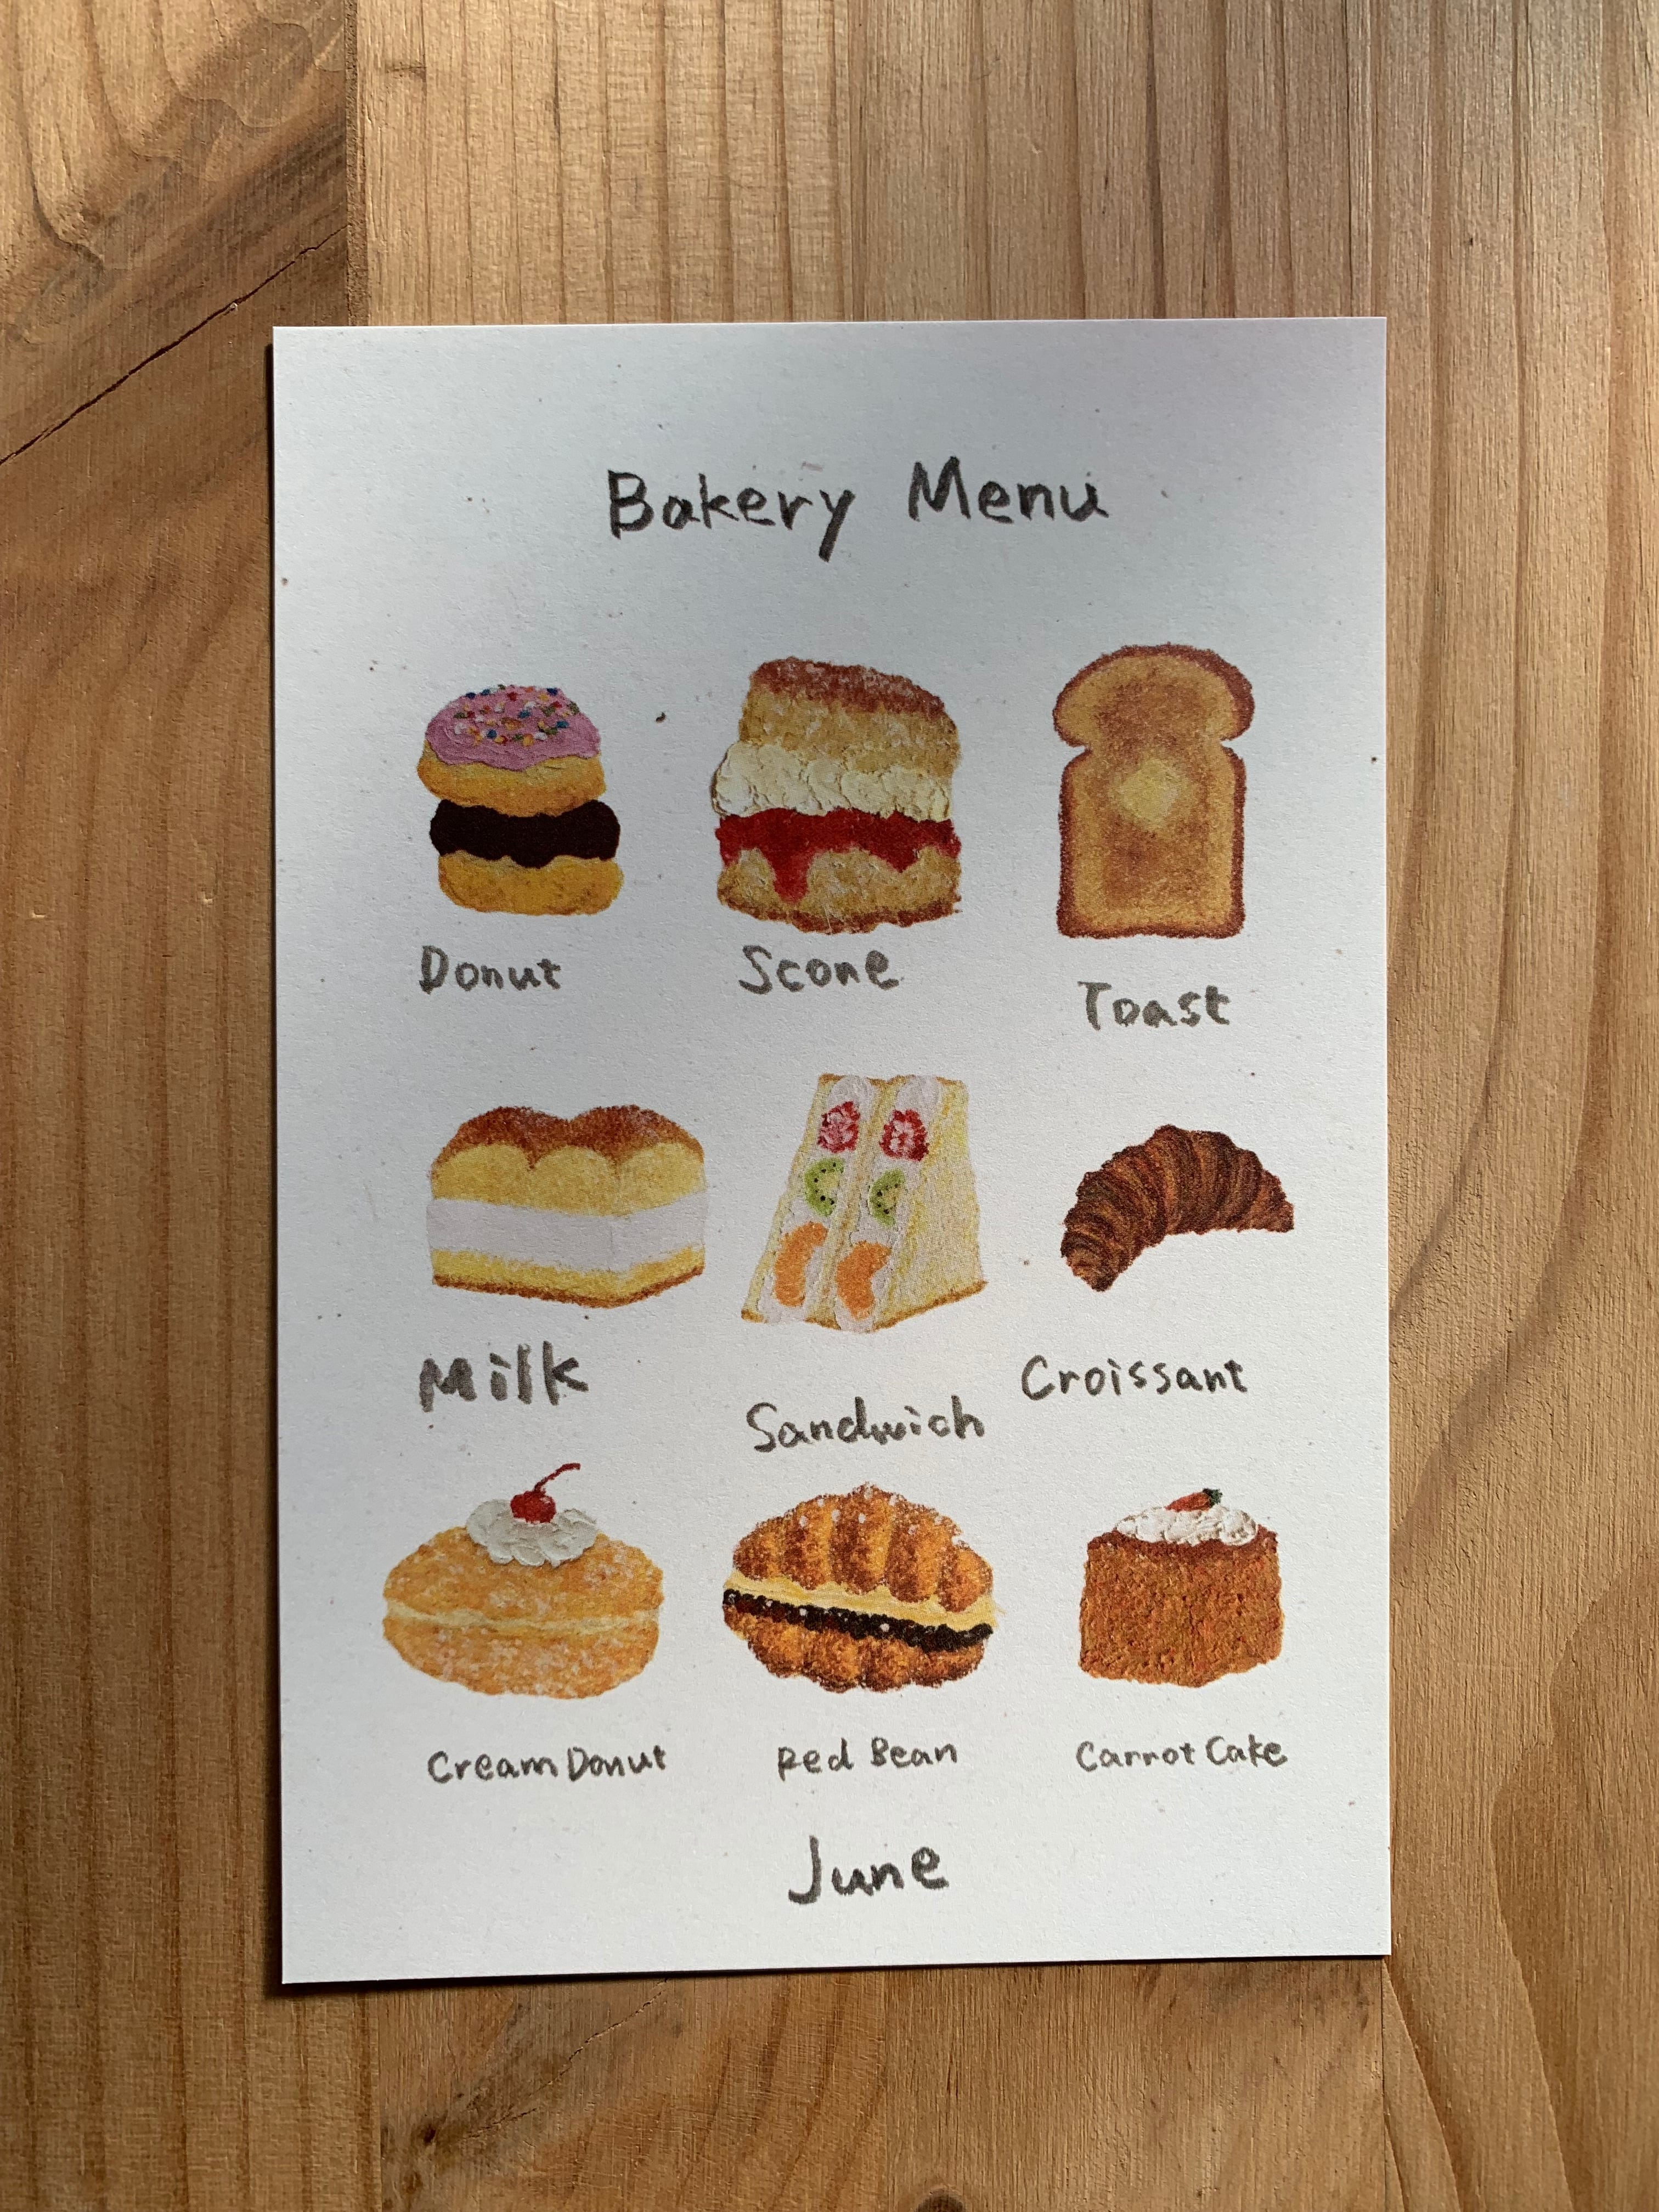 Bakery Menu
Donut
Scone
Toast
Milk
Sandwich
Croissant
Cream Donut
Red Bean
Carrot Cake
June